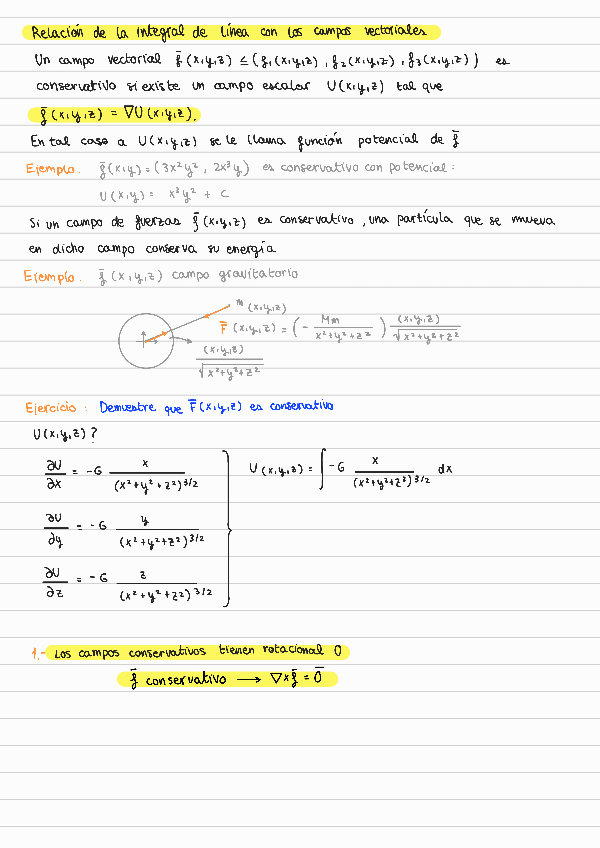 Relación de la integral de línea con los campos vectoriales
Un campo vectorial f̄(x,y,z) ≤ (f₁(x,y,z), f₂(x,y,z), f₃(x,y,z)) es
conservativo si existe un campo escalar U(x,y,z) tal que
f̄(x,y,z) = ∇U(x,y,z).
En tal caso a U(x,y,z) se le llama función potencial de f̄
Ejemplo. f̄(x,y) = (3x²y², 2x³y) es conservativo con potencial:
U(x,y) = x³y² + C
Si un campo de fuerzas f̄(x,y,z) es conservativo, una partícula que se mueva
en dicho campo conserva su energía
Ejemplo. f̄(x,y,z) campo gravitatorio
m (x,y,z)
F̄(x,y,z) = (- Mm / x²+y²+z²) (x,y,z) / √x²+y²+z²
(x,y,z) / √x²+y²+z²
Ejercicio: Demuestre que F̄(x,y,z) es conservativo
U(x,y,z)?
∂U/∂x = -G x / (x²+y²+z²)^3/2 U(x,y,z) = ∫ -G x / (x²+y²+z²)^3/2 dx
∂U/∂y = -G y / (x²+y²+z²)^3/2
∂U/∂z = -G z / (x²+y²+z²)^3/2
1.- Los campos conservativos tienen rotacional 0
f̄ conservativo → ∇×f̄ = 0̄